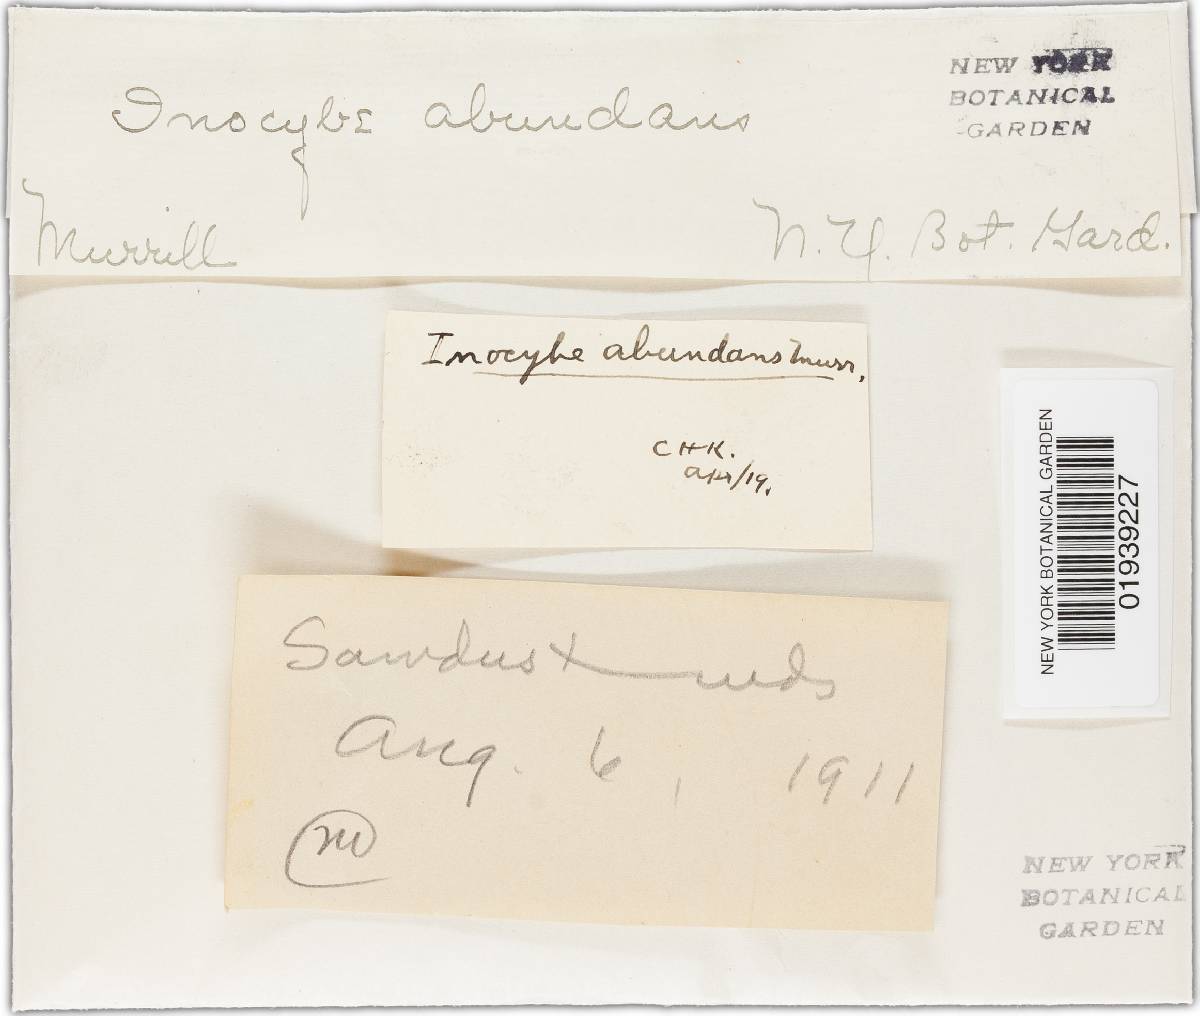 Inocybe abundans
NEW YORK
BOTANICAL
GARDEN
Murrill
N. Y. Bot. Gard.
Inocybe abundans Murr.
C H K.
Apr/19.
NEW YORK BOTANICAL GARDEN
01939227
Sawdust
Aug. 6, 1911
NEW YORK
BOTANICAL
GARDEN